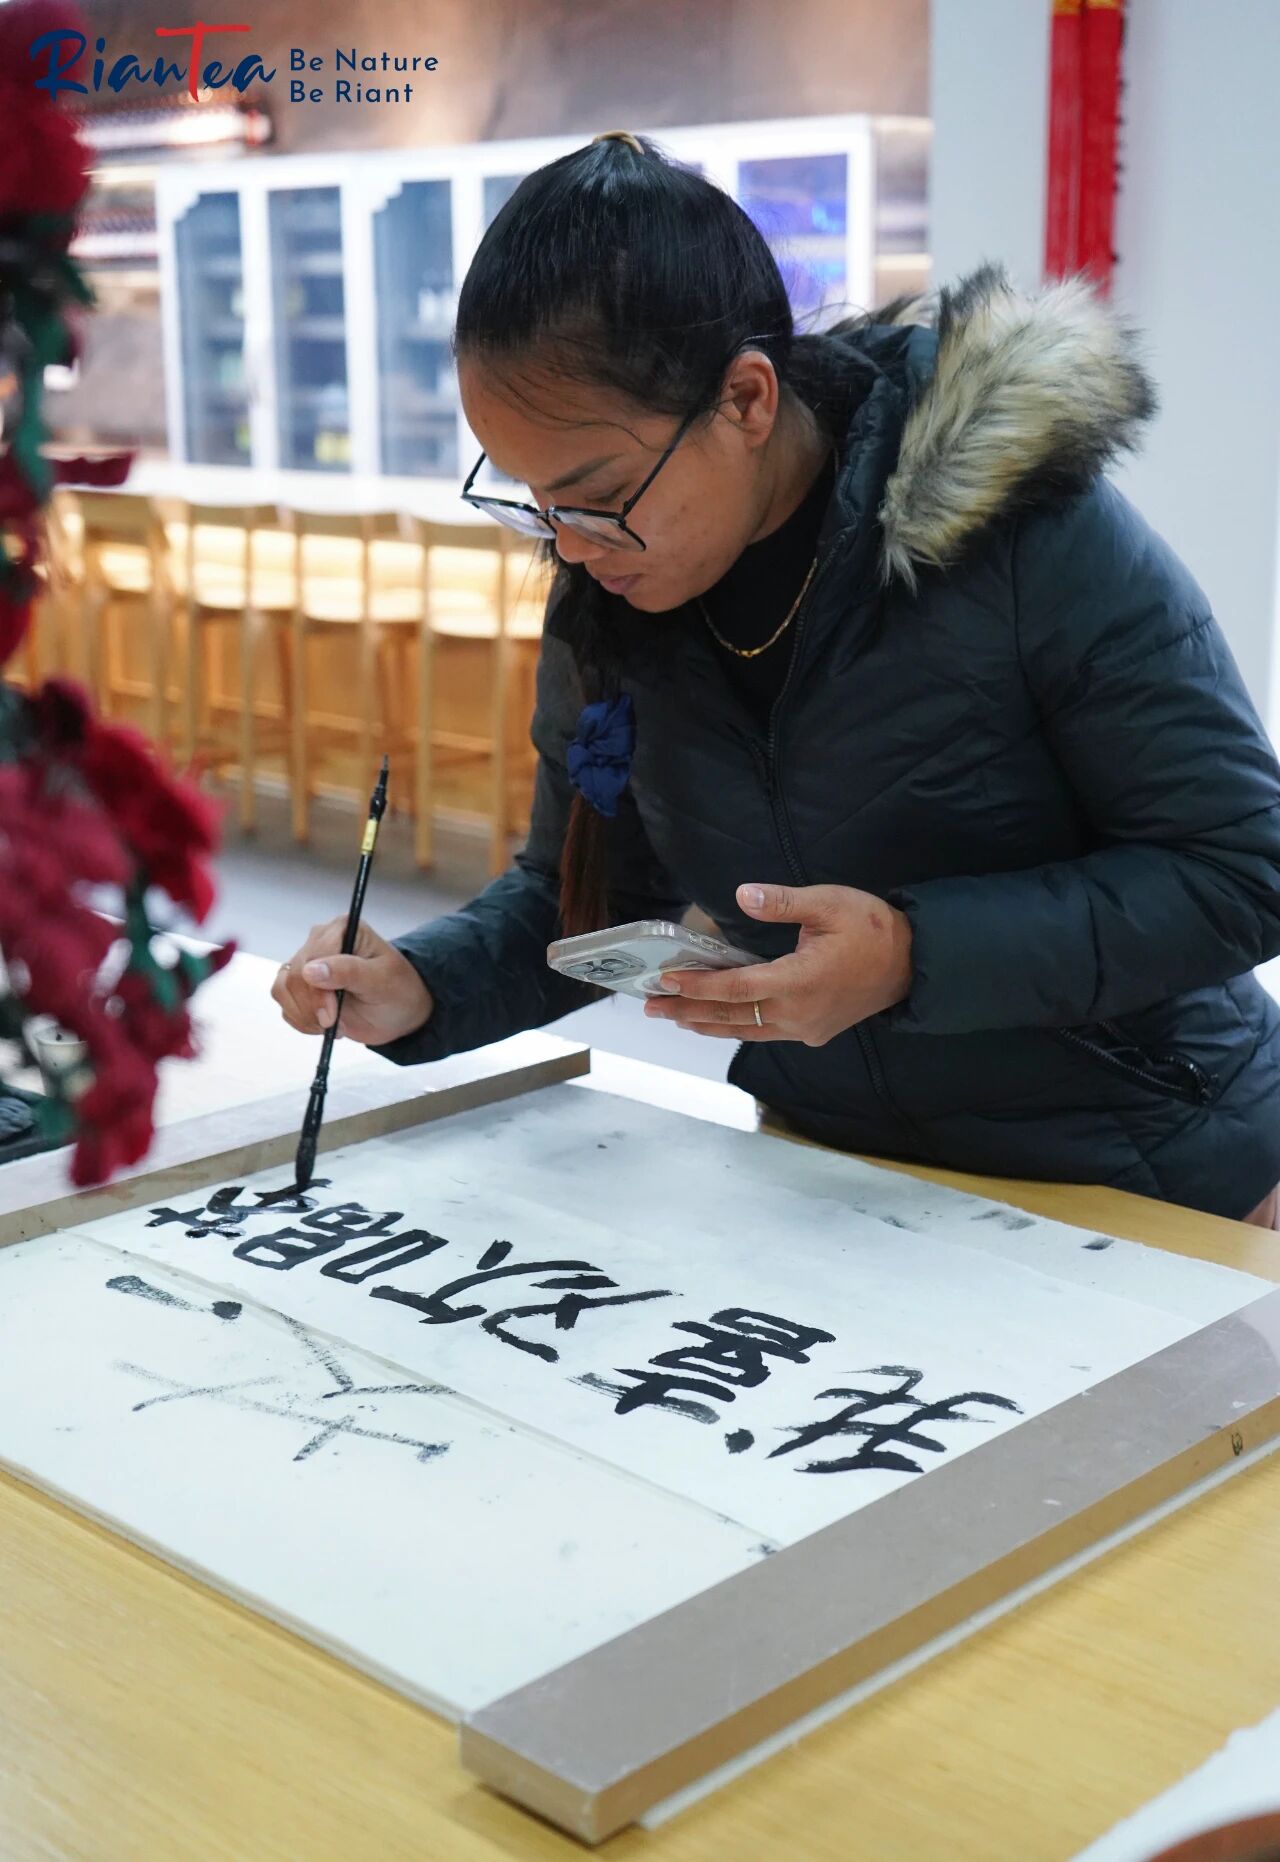 RianTea
Be Nature
Be Riant
我喜欢喝茶